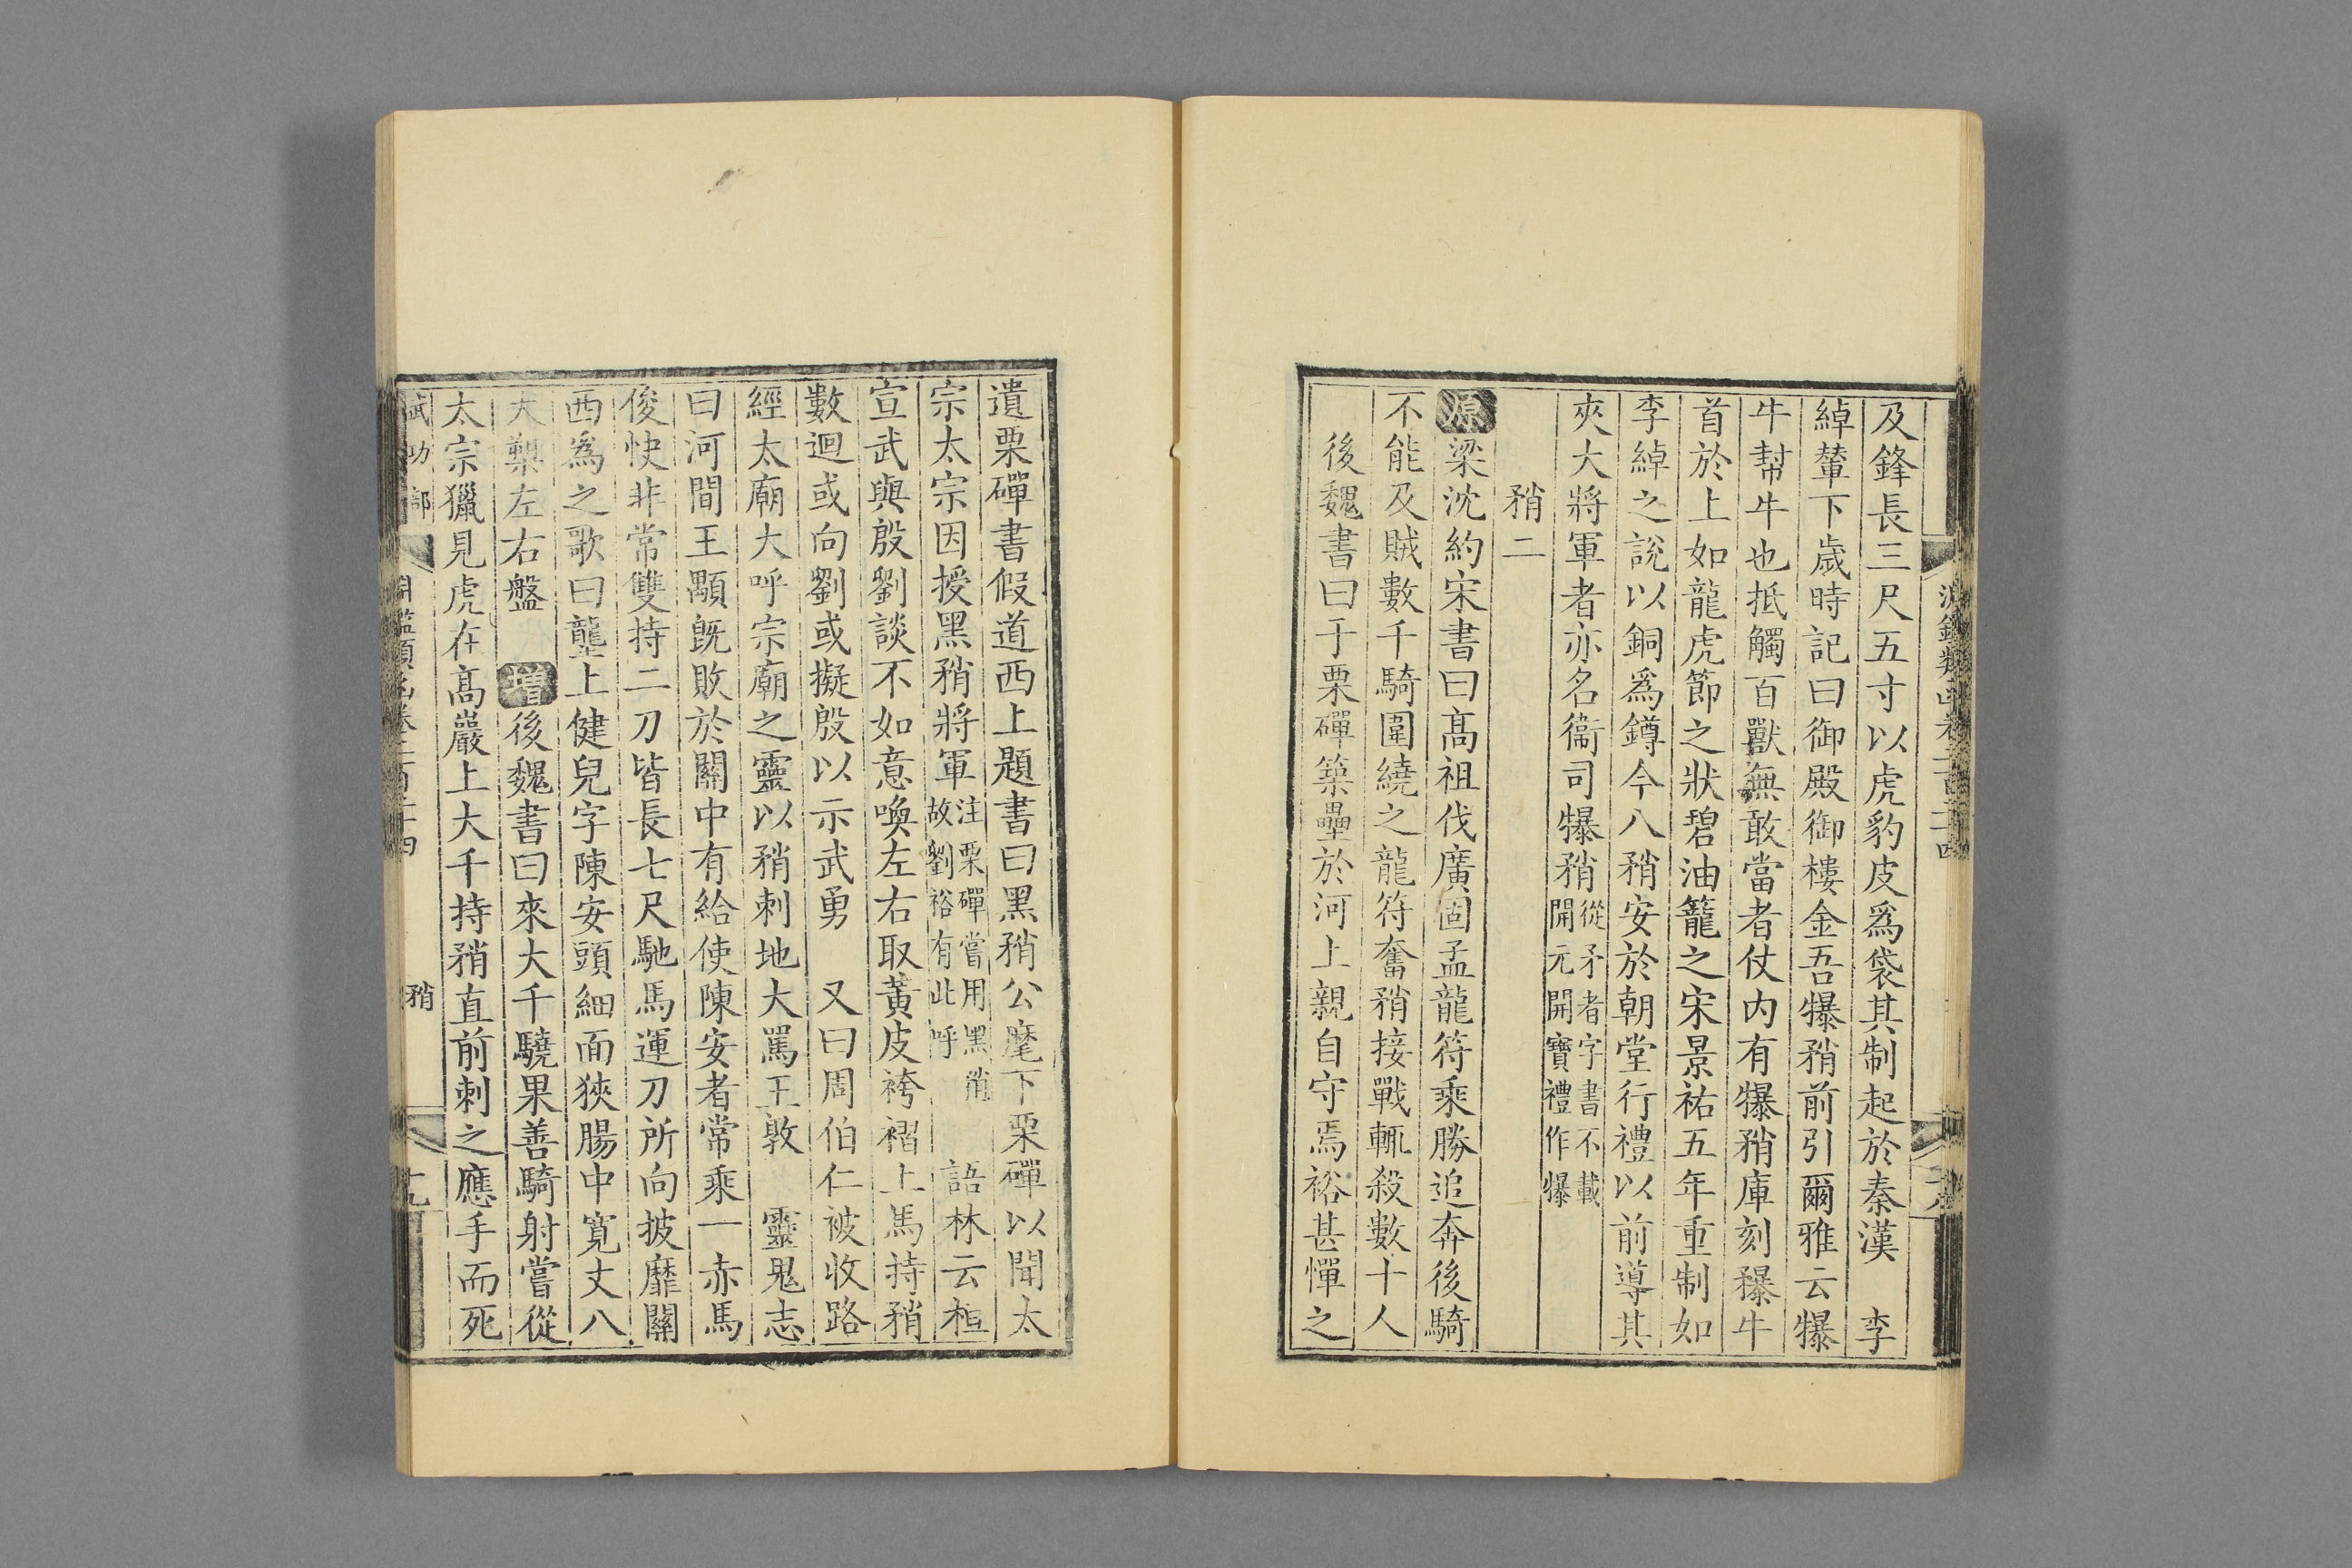 及鋒長三尺五寸以虎豹皮爲袋其制起於秦漢　李
綽輦下歲時記曰御殿御樓金吾犦矟前引爾雅云犦
牛犎牛也抵觸百獸無敢當者仗内有犦矟庫刻犦牛
首於上如龍虎節之狀碧油籠之宋景祐五年重制如
李綽之說以銅爲鐏今八矟安於朝堂行禮以前導其
夾大將軍者亦名衞司犦矟
從矛者字書不載
開元開寶禮作犦
矟二
原梁沈約宋書曰高祖伐廣固孟龍符乘勝追奔後騎
不能及賊數千騎圍繞之龍符奮矟接戰輒殺數十人
後魏書曰于栗磾築壘於河上親自守焉裕甚憚之
遺栗磾書假道西上題書曰黑矟公麾下栗磾以聞太
宗太宗因授黑矟將軍
注栗磾嘗用黑矟
故劉裕有此呼
語林云桓
宣武與殷劉談不如意喚左右取黃皮袴褶上馬持矟
數迴或向劉或擬殷以示武勇　又曰周伯仁被收路
經太廟大呼宗廟之靈以矟刺地大罵王敦　靈鬼志
曰河間王顒旣敗於關中有給使陳安者常乘一赤馬
俊快非常雙持二刀皆長七尺馳馬運刀所向披靡關
西爲之歌曰壟上健兒字陳安頭細面狹腸中寬丈八
大槊左右盤　增後魏書曰來大千驍果善騎射嘗從
太宗獵見虎在高巖上大千持矟直前刺之應手而死
武功部
淵鑑類函卷二百二十四
矟
十九